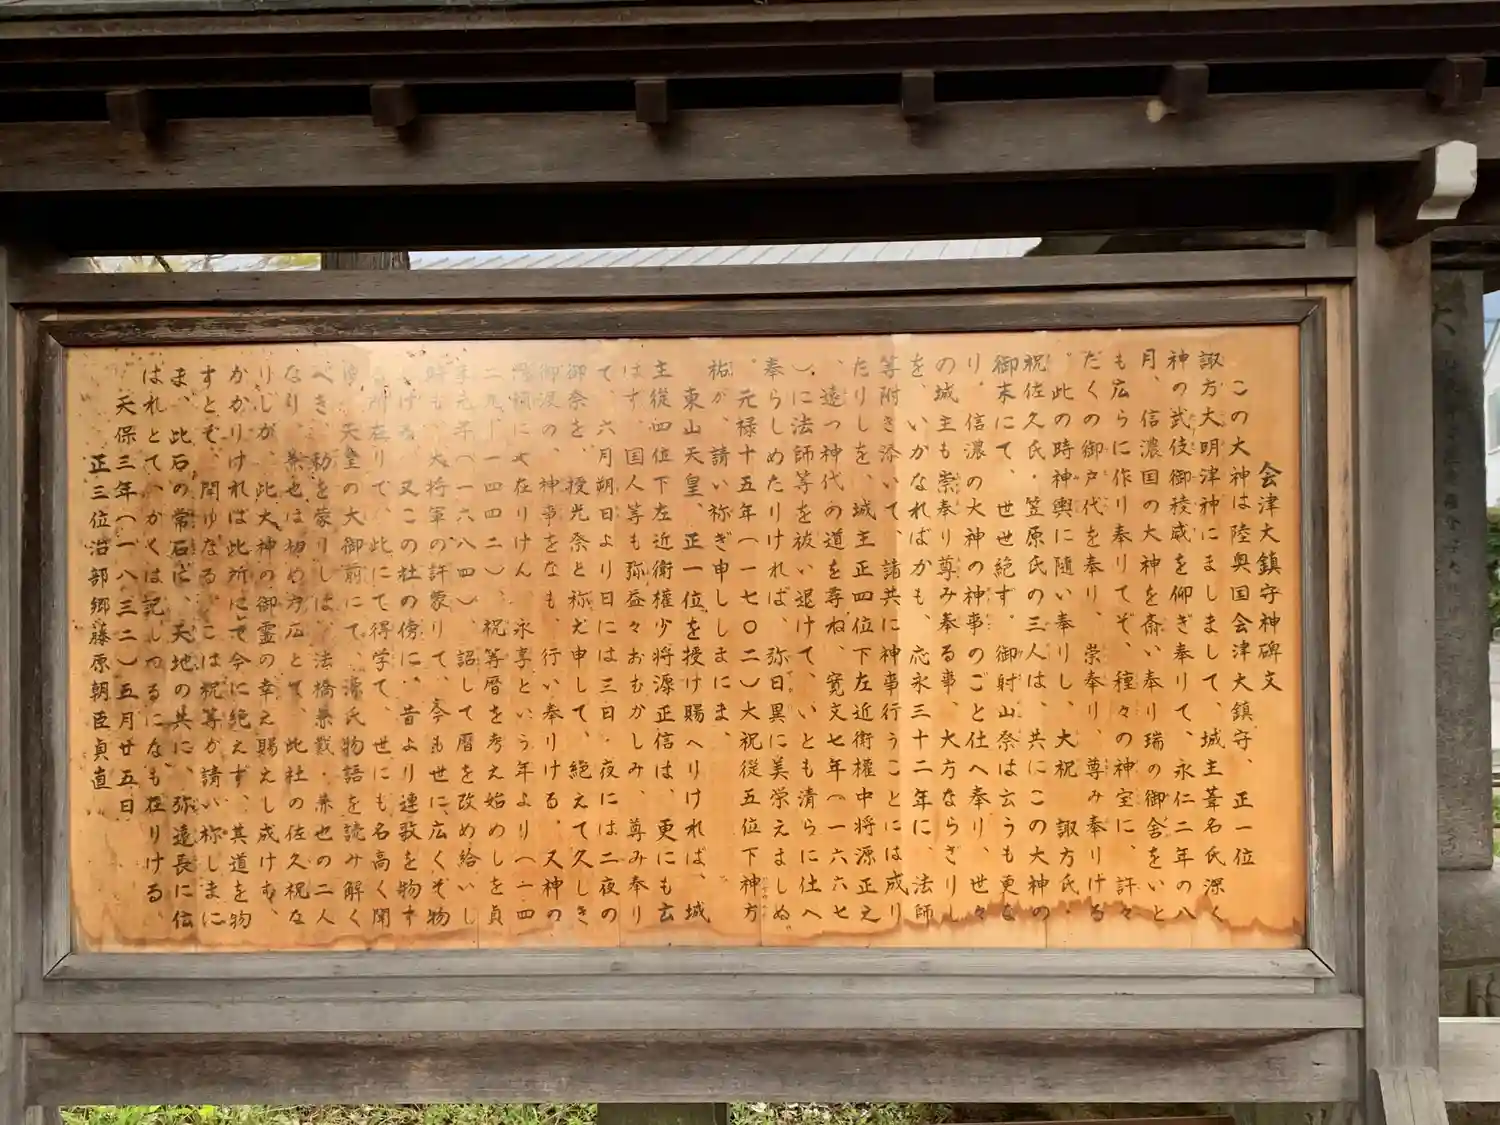 会津大鎮守神碑文
この大神は陸奥国会津大鎮守、正一位
諏方大明津神にましまして、城主葦名氏深く
神の武伎御稜威を仰ぎ奉りて、永仁二年の八
月、信濃国の大神を斎い奉り瑞の御舎をいと
も広らに作り奉りてぞ、種々の神宝に、許々
だくの御戸代を奉り、崇奉り、尊み奉りける
。此の時神輿に随い奉りし、大祝 諏方氏・
祝佐久氏・笠原氏の三人は、共にこの大神の
御末にて、世世絶ず。御射山祭は玄うも更な
り、信濃の大神の神事のごと仕へ奉り、世々
の城主も崇奉り尊み奉る事、大方ならざりし
を、いかなればかも、応永三十二年に、法師
等附き添いて、諸共に神事行うことには成り
たりしを、城主正四位下左近衛權中将源正之
、遠つ神代の道を尋ね、寛文七年(一六六七
)に法師等を祓い退けて、いとも清らに仕へ
奉らしめたりければ、弥日異に美栄えましぬ
。元禄十五年(一七〇二)大祝従五位下神方
樹が、請い祢ぎ申ししまにま、
東山天皇、正一位を授け賜へりければ、城
主従四位下左近衛權少将源正信は、更にも玄
はず、国人等も弥益々おむかしみ、尊み奉り
て、六月朔日より日には三日・夜には二夜の
御祭を、授光祭と称え申して、絶えて久しき
御渡の、神事をなも、行い奉りける。又神の
に在りけん、永享という年より(一四
二)、祝等暦を考え始めしを貞
享元年(一六八四)、詔して暦を改め給いし
時も、大将軍の許蒙りて、今も世に広くぞ物
しける。又この社の傍に、昔より連歌を物す
る所在りて、此にて得学て、世にも名高く聞
ゆ、天皇の大御前にて、源氏物語を読み解く
べき、勅を蒙りしは、法橋兼載・兼也の二人
なり、兼也は初め方広とて、此社の佐久祝な
りしが、此大神の御霊の幸え賜えし成けむ、
かかりければ此所にて今に絶えず、其道を物
すとぞ、聞ゆなる。こは祝等が請い祢しまに
ま、此石の常石に、天地の共に、弥遠長に伝
はれとて、かくは記しつるになも在りける、
天保三年(一八三二)五月廿五日
正三位治部郷藤原朝臣貞直